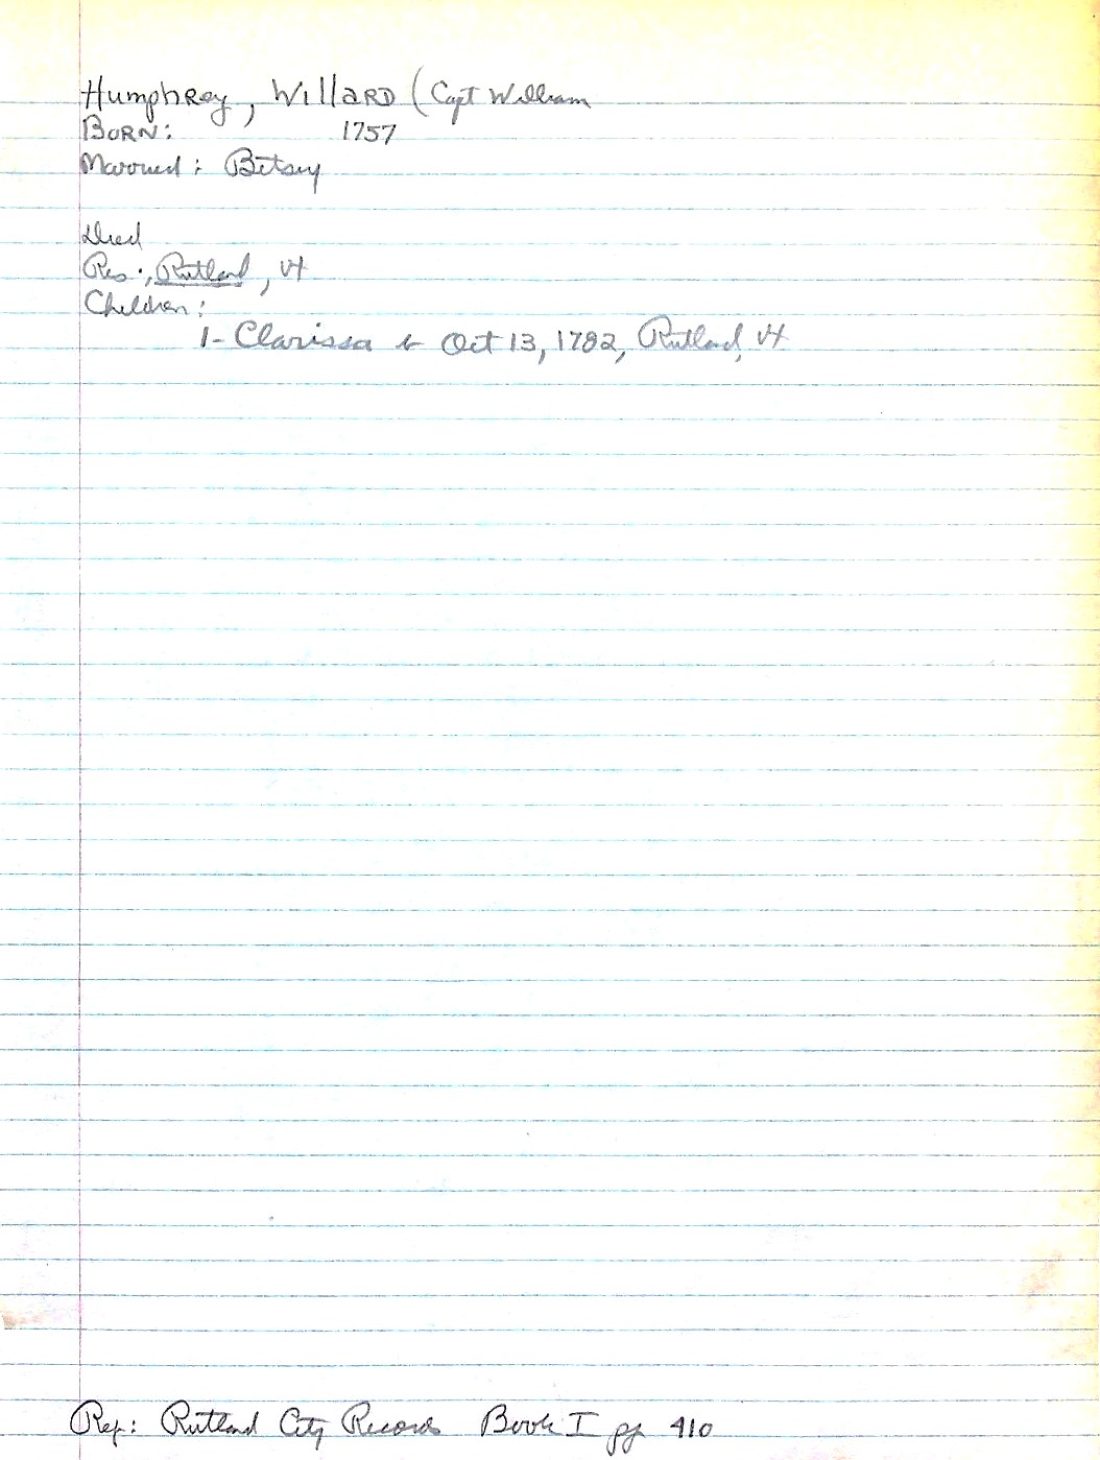 Humphrey, Willard (Capt William
Born: 1757
Married: Betsey
Died
Res., Rutland, Vt
Children:
1- Clarissa b Oct 13, 1782, Rutland, Vt
Ref: Rutland City Records Book I pg 410